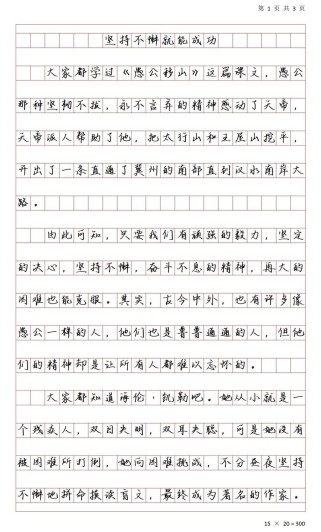 第 1 页 共 3 页
坚持不懈就能成功
大家都学过《愚公移山》这篇课文，愚公
那种坚韧不拔，永不言弃的精神感动了天帝，
天帝派人帮助了他，把太行山和王屋山挖平，
开出了一条直通了冀州的南部直到汉水南岸大
路。
由此可知，只要我们有顽强的毅力，坚定
的决心，坚持不懈，奋斗不息的精神，再大的
困难也能克服。其实，古今中外，也有许多像
愚公一样的人，他们也是普普通通的人，但他
们的精神却是让所有人都难以忘怀的。
大家都知道海伦·凯勒吧。她从小就是一
个残疾人，双目失明，双耳失聪，可是她没有
被困难所打倒，她向困难挑战，不分昼夜坚持
不懈地拼命摸读盲文，最终成为著名的作家。
15 × 20 = 300